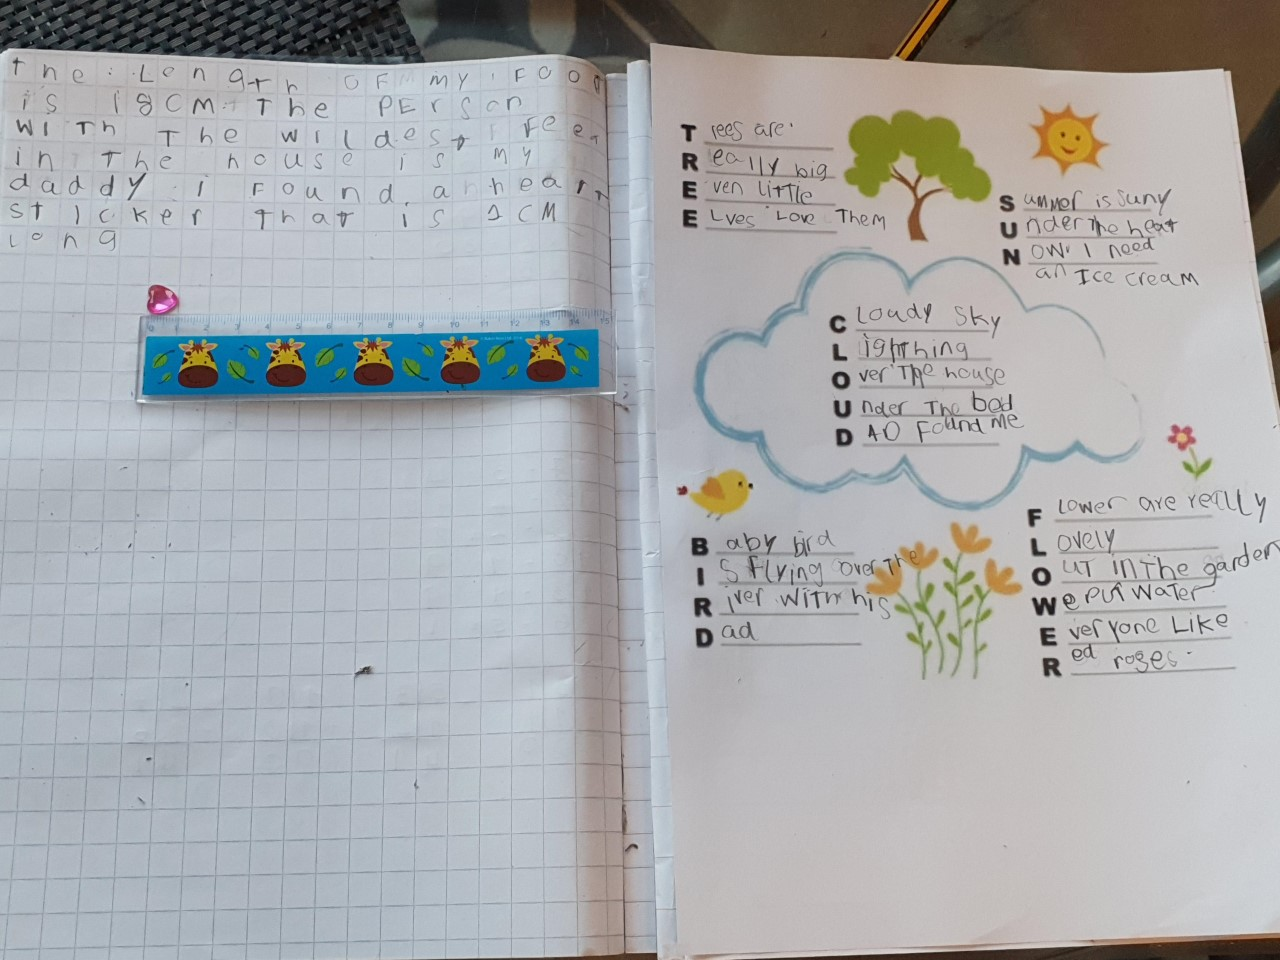 the Length OF my Food
is 18CM The PErson
WiTh The wildest Feet
in The house is my
daddy i Found an heart
sticker that is 1CM
long
0 1 2 3 4 5 6 7 8 9 10 11 12 13 14 15
Trees are
Really big
Even Little
ELves Love Them
Summer is Suny
Under The heat
Now I need
an Ice cream
CLoudy Sky
Lightning
Over The house
Under The bed
DAD Found Me
Baby bird
IS flying over The
River WiTh his
Dad
FLower are reaLLy
Lovely
OuT in The garden
We puT WaTer
Everyone Like
Red roses.